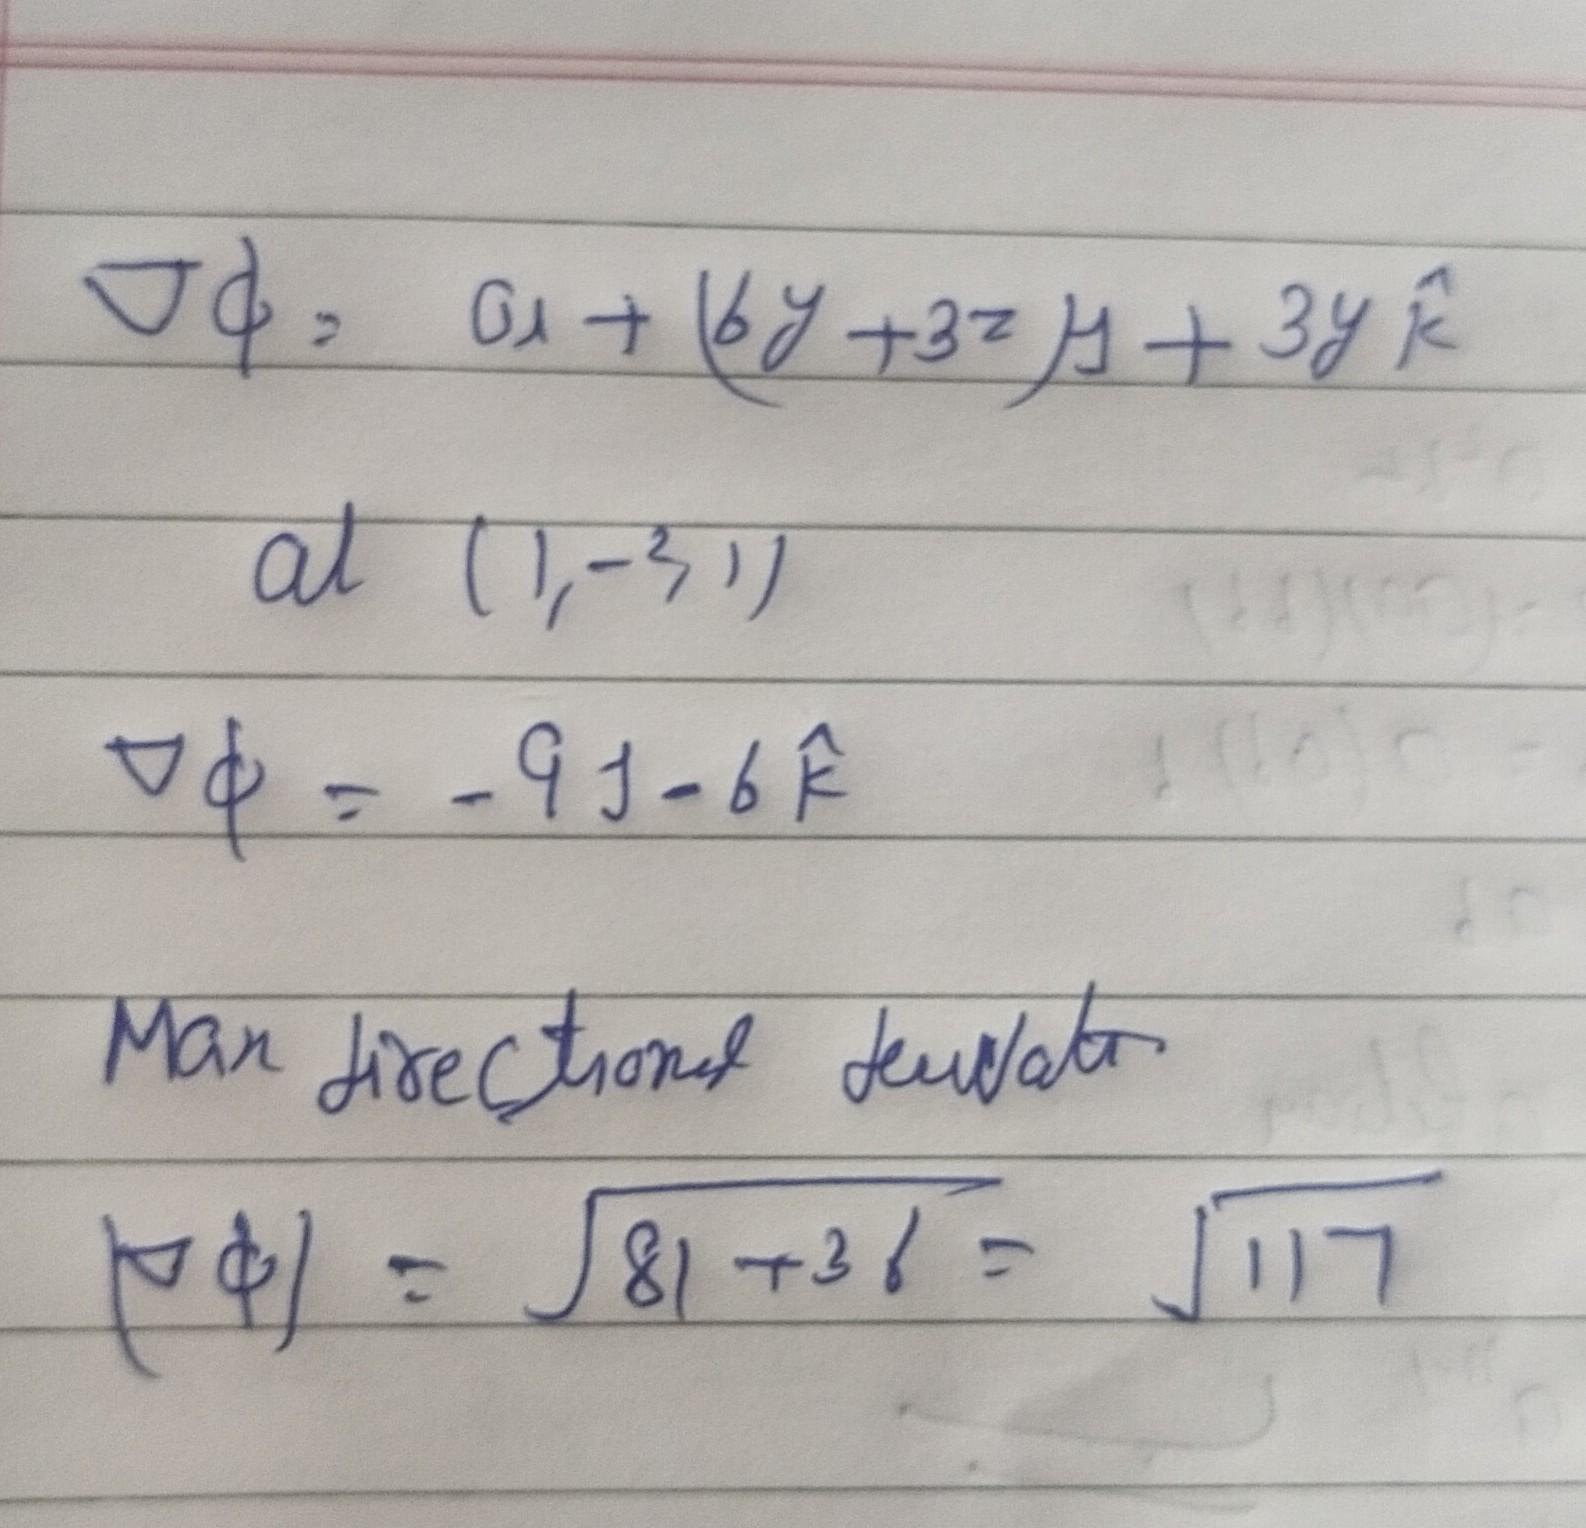 ∇ϕ = 0i + (6y + 3z)j + 3y k̂
at (1, -2, 1)
∇ϕ = -9j - 6k̂
Max directional derivative
|∇ϕ| = √81+36 = √117